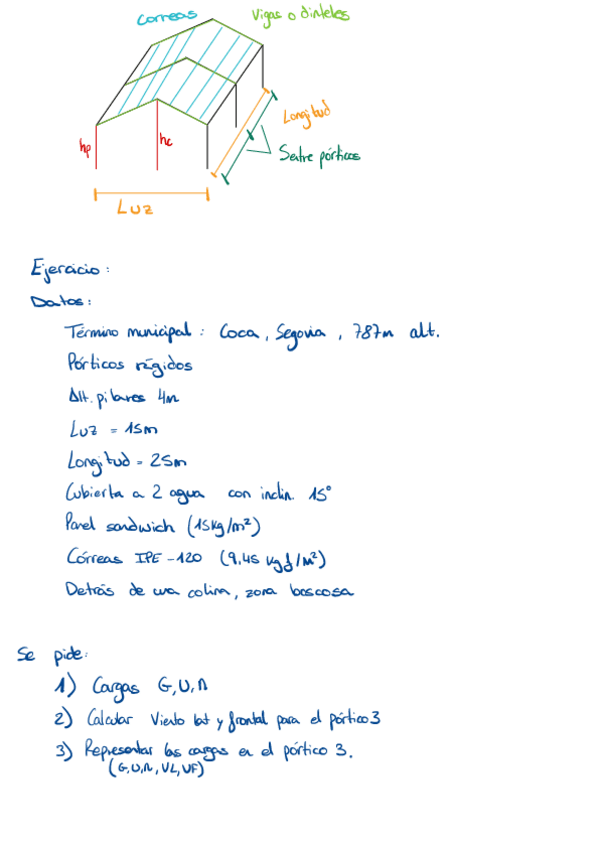 Correas
Vigas o dinteles
hp
hc
Longitud
Sentre pórticos
Luz
Ejercicio:
Datos:
Término municipal: Coca, Segovia, 787m alt.
Pórticos rígidos
Alt. pilares 4m
Luz = 15m
Longitud = 25m
Cubierta a 2 agua con inclin. 15°
Panel sandwich (15kg/m²)
Córreas IPE-120 (9,45 kgf/m²)
Detrás de una colina, zona boscosa
Se pide:
1) Cargas G, U, N
2) Calcular Viento lat y frontal para el pórtico 3
3) Representar las cargas en el pórtico 3.
(G, U, N, VL, VF)